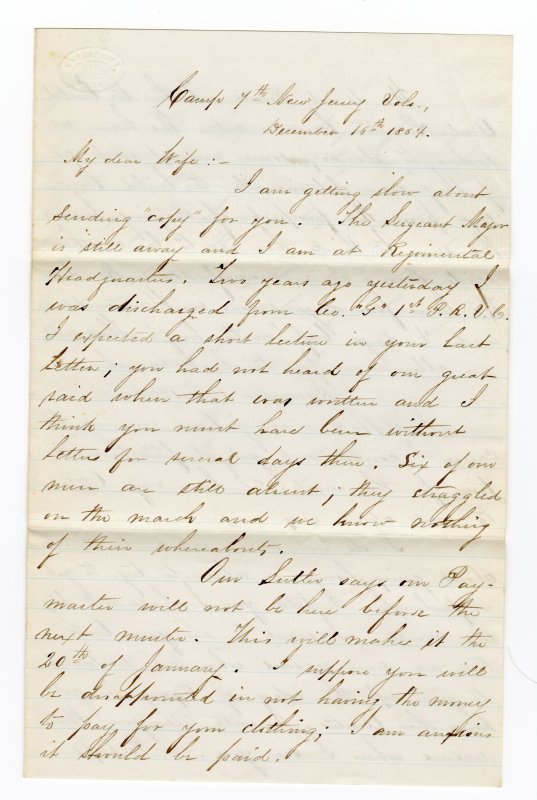 Camp 7th New Jersey Vols.,
December 16th 1864.
My dear Wife :-
I am getting slow about
sending "copy" for you. The Sergeant Major
is still away and I am at Regimental
Headquarters. Two years ago yesterday I
was discharged from Co. "G" 1st P. R. V. C.
I expected a short lecture in your last
letter; you had not heard of our great
raid when that was written and I
think you must have been without
letters for several days then. Six of our
men are still absent; they straggled
on the march and we know nothing
of their whereabouts.
Our Sutler says our Pay-
master will not be here before the
next muster. This will make it the
20th of January. I suppose you will
be disappointed in not having the money
to pay for your clothing; I am anxious
it should be paid.